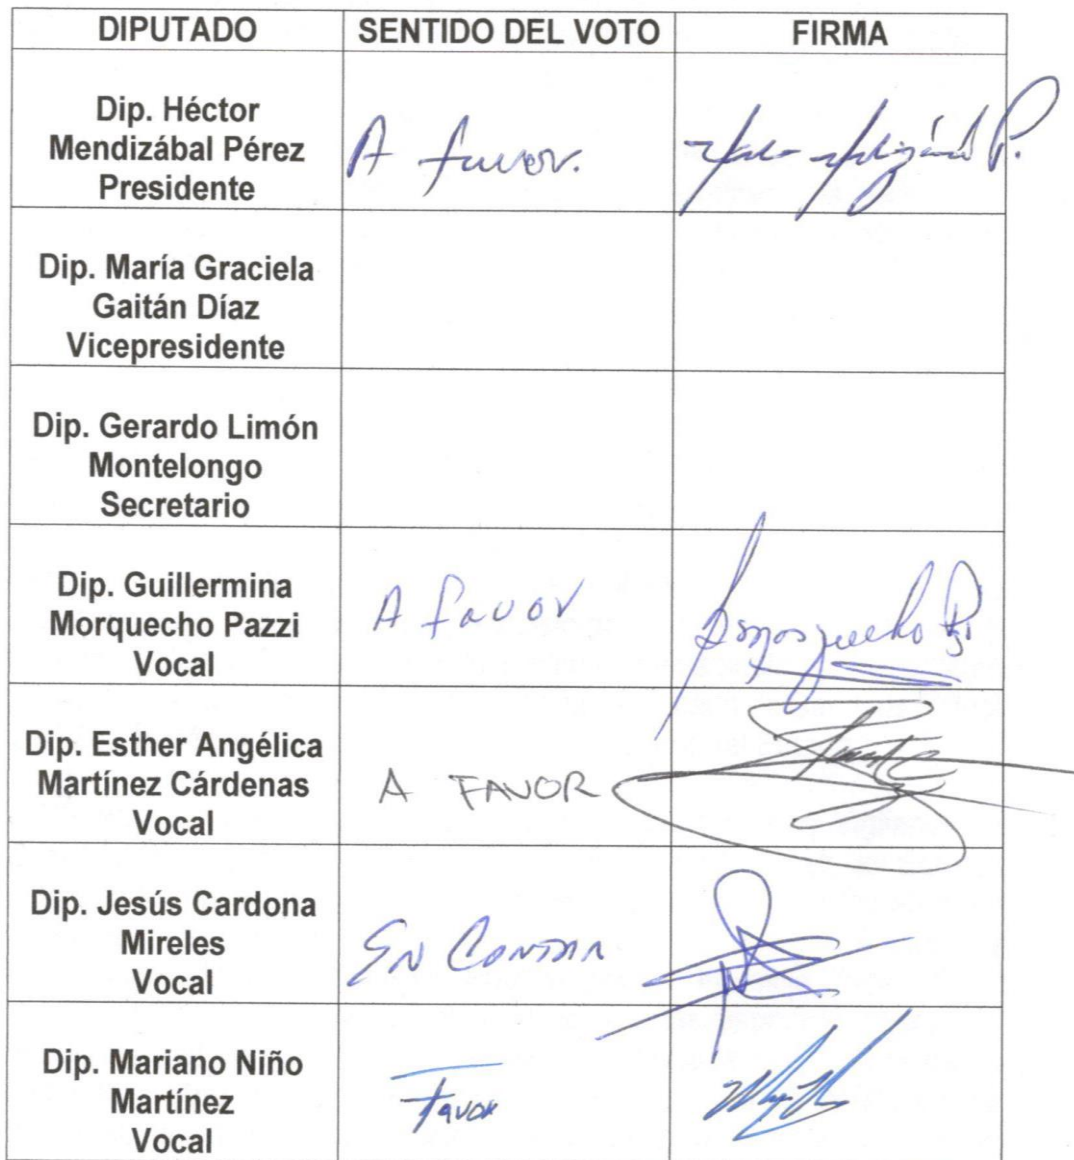 DIPUTADO SENTIDO DEL VOTO FIRMA
Dip. Héctor
Mendizábal Pérez
Presidente
A favor.
Dip. María Graciela
Gaitán Díaz
Vicepresidente
Dip. Gerardo Limón
Montelongo
Secretario
Dip. Guillermina
Morquecho Pazzi
Vocal
A favor
Dip. Esther Angélica
Martínez Cárdenas
Vocal
A FAVOR
Dip. Jesús Cardona
Mireles
Vocal
EN CONTRA
Dip. Mariano Niño
Martínez
Vocal
Favor